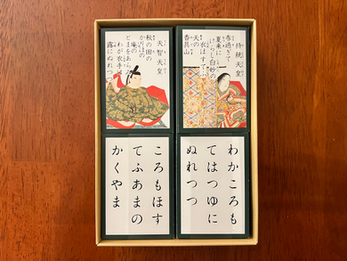 持統天皇
春過ぎて
夏来に
けらし白妙の
衣ほすてふ
天の
香具山
天智天皇
秋の田の
かりほの
庵の
とまをあらみ
わが衣手は
露にぬれつつ
わかころも
てはつゆに
ぬれつつ
ころもほす
てふあまの
かくやま